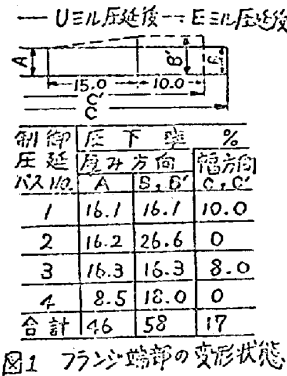 — Uミル圧延後 --- Eミル圧延後
A
B'
B
15.0
10.0
C'
C
制御圧延パスNo. 圧下率 %
厚み方向 幅方向
A B, B' C, C'
1 16.1 16.1 10.0
2 16.2 26.6 0
3 16.3 16.3 8.0
4 8.5 18.0 0
合計 46 58 17
図1 フランジ端部の変形状態